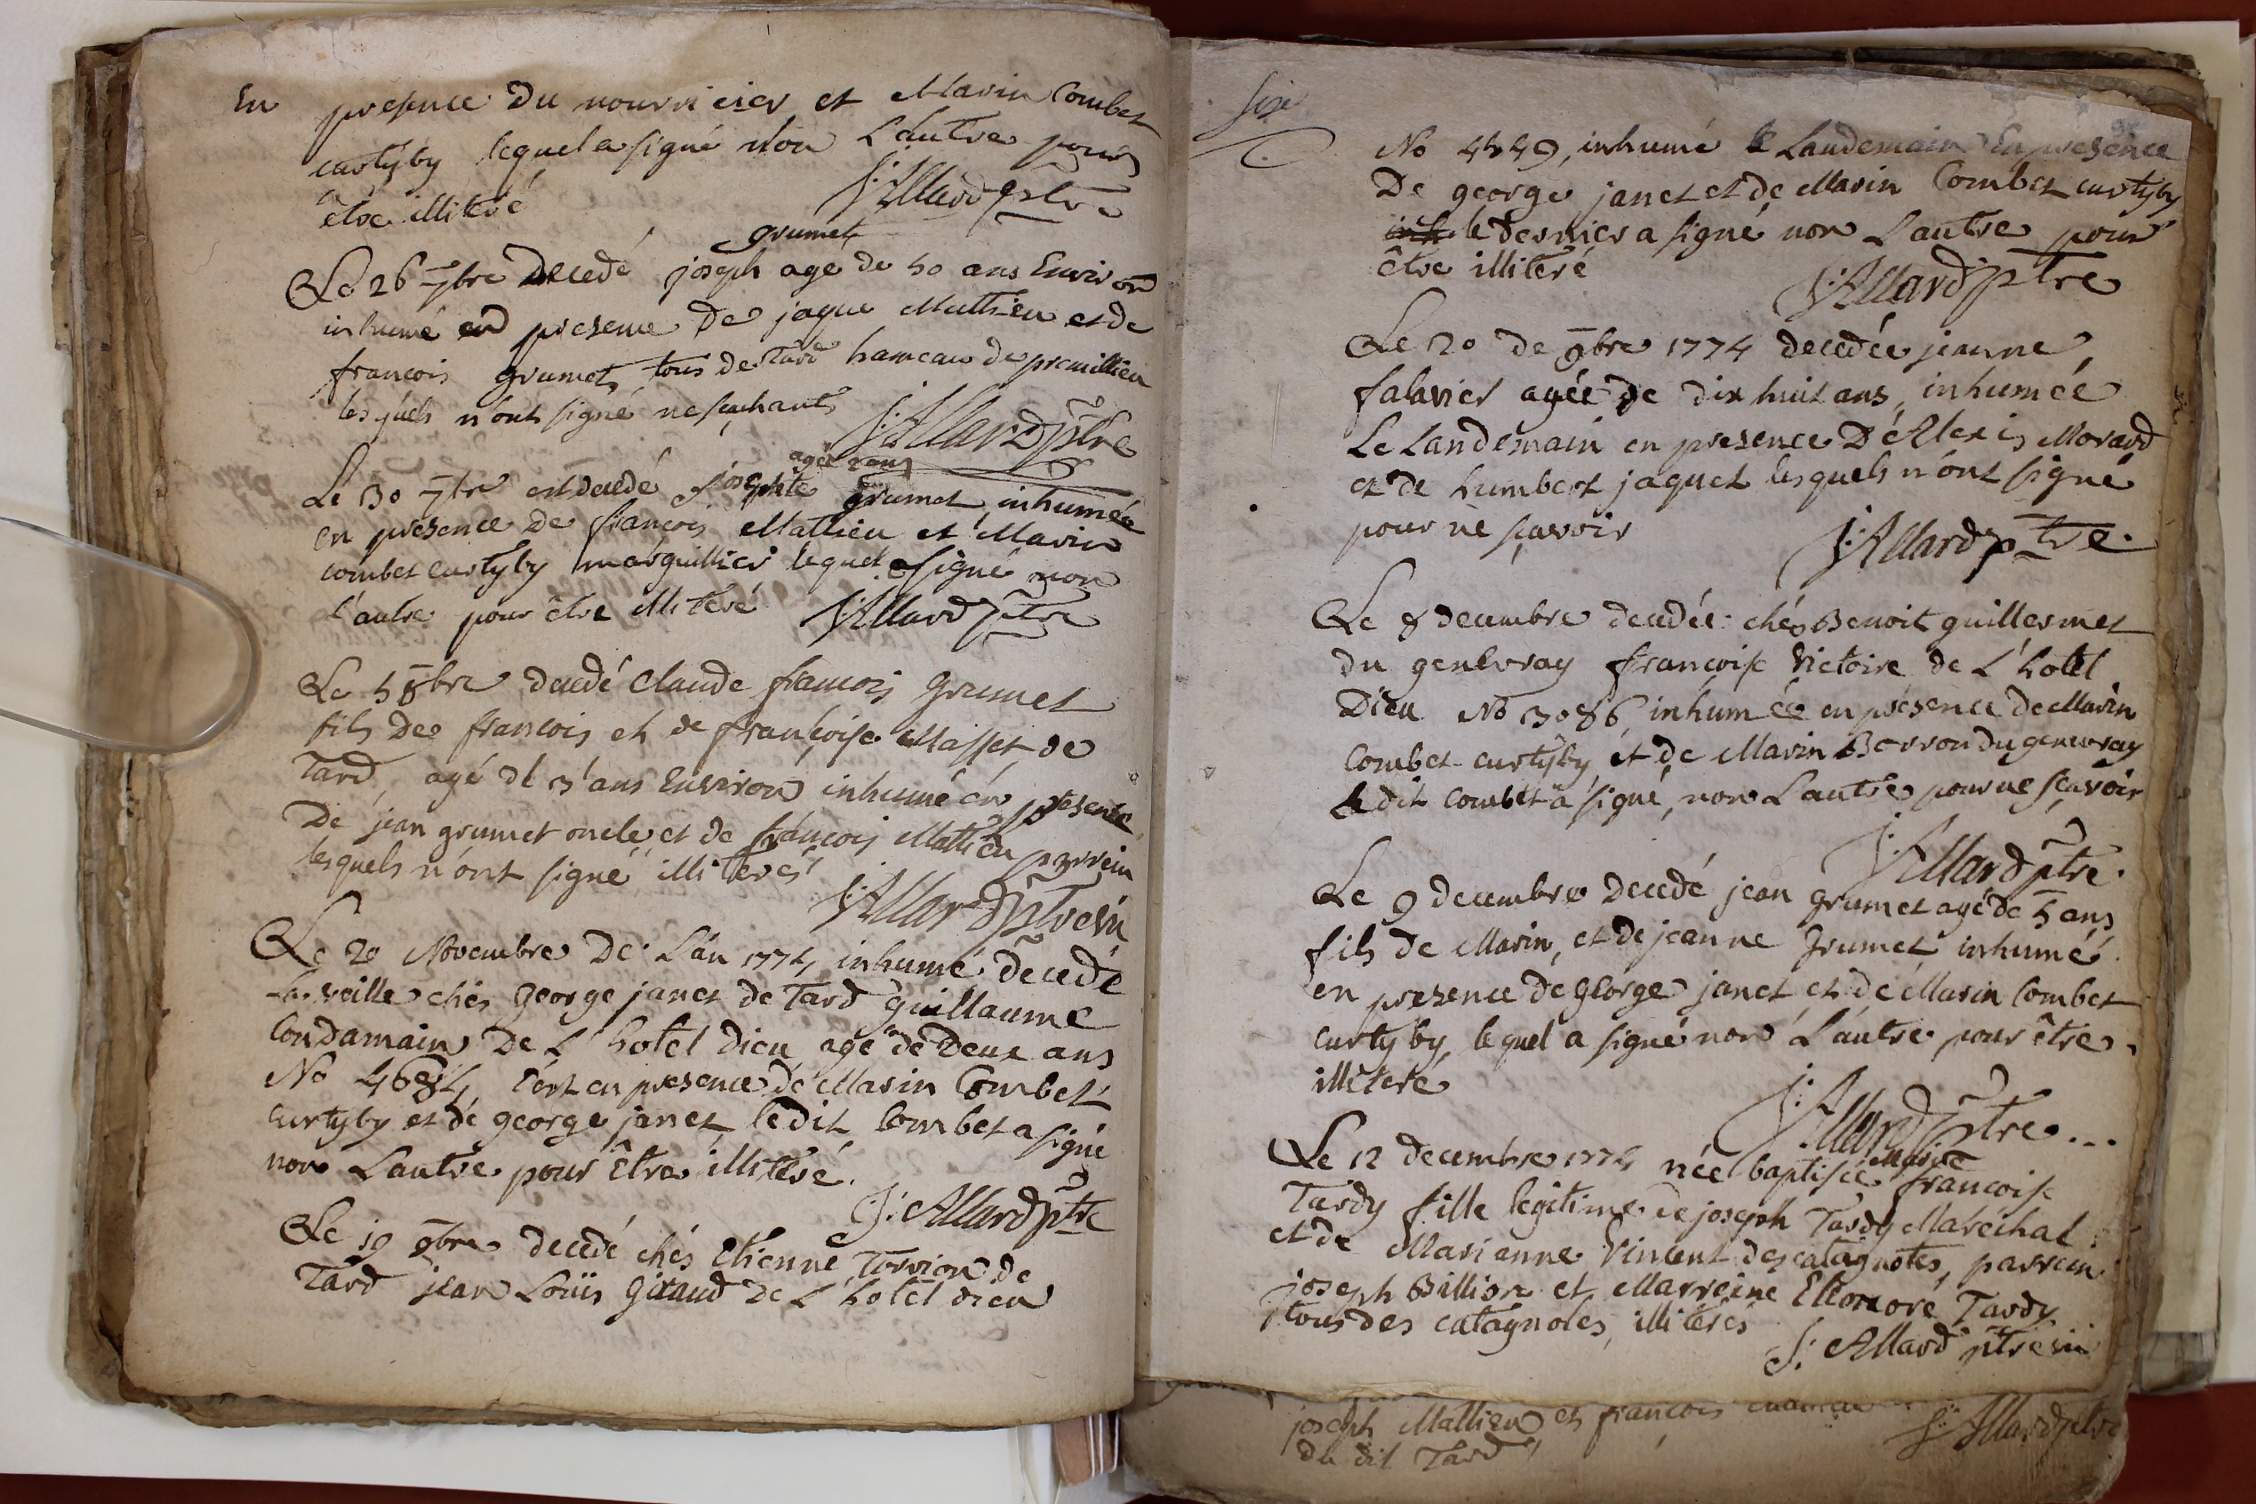 En presence du nourricier et Marin Combet
curtyby lequel a signé non L'autre pour
être illiteré J: Allard ptre
grumet
Le 26 7bre Decedé joseph age de 50 ans Environ
inhumé en presence De jaque Mathieu et de
francois grumet, tous de Tard hameau de premillieu
lesquels n'ont signé ne sçachants
J: Allard ptre
agée 2 ans
Le 30 7bre est decedé josephte grumet inhumée
en presence de francois Mathieu et Marin
combet curtyby marguillier lequel a signé non
l'autre pour être illiteré J: Allard ptre
Le 5 8bre decedé Claude francois Grumet
fils De francois et de françoise Masset de
Tard, agé de 3 ans Environ inhumé en presence
De jean grumet oncle, et de francois Mathieu parrein
lesquels n'ont signé illiterés
J: Allard ptre vic
Le 20 Novembre De L'an 1774, inhumé decedé
La veille chés George janet de Tard guillaume
Condamain De L'hotel Dieu agé de Deux ans
No 4684, c'est en presence de Marin Combet
curtyby et de george janet, ledit Combet a signé
non L'autre pour Être illiteré.
J: Allard ptre
Le 19 9bre decedé chés Etienne Torrion de
Tard jean Loüis Giraud De L'hotel dieu
six
No 4549, inhumé le Landemain En presence
De george janet et de Marin Combet curtyby
le dernier a signé non L'autre pour
être illiteré
J: Allard ptre
Le 20 De 9bre 1774 decedée jeanne
falavier agée de dix huit ans, inhumée
Le Landemain en presence D'Alexis Morard
et de humbert jaquet lesquels n'ont signé
pour ne sçavoir
J: Allard ptre.
Le 8 decembre decedée chés Benoit guillermet
du genevray francoise Victoire de L'hotel
Dieu No 3086 inhumée en presence de Marin
Combet curtyby, et de Marin Berron du genevray
ledit Combet a signé, non L'autre pour ne sçavoir
J: Allard ptre.
Le 9 decembre Decedé jean grumet agé de 5 ans
fils de Marin, et de jeanne Grumet inhumé
en presence de George janet et de Marin Combet
curtyby, lequel a signé non L'autre pour être
illiteré
J: Allard ptre...
Marie
Le 12 decembre 1774 née baptisée francoise
Tardy fille legitime de joseph Tardy Maréchal
et de Marianne Vincent des catagnoles, parrein
joseph Billion et Marreine Eleonore Tardy
tous des catagnoles, illiterés
J: Allard ptre vic
joseph Mathieu et francois
du dit Tard J: Allard ptre